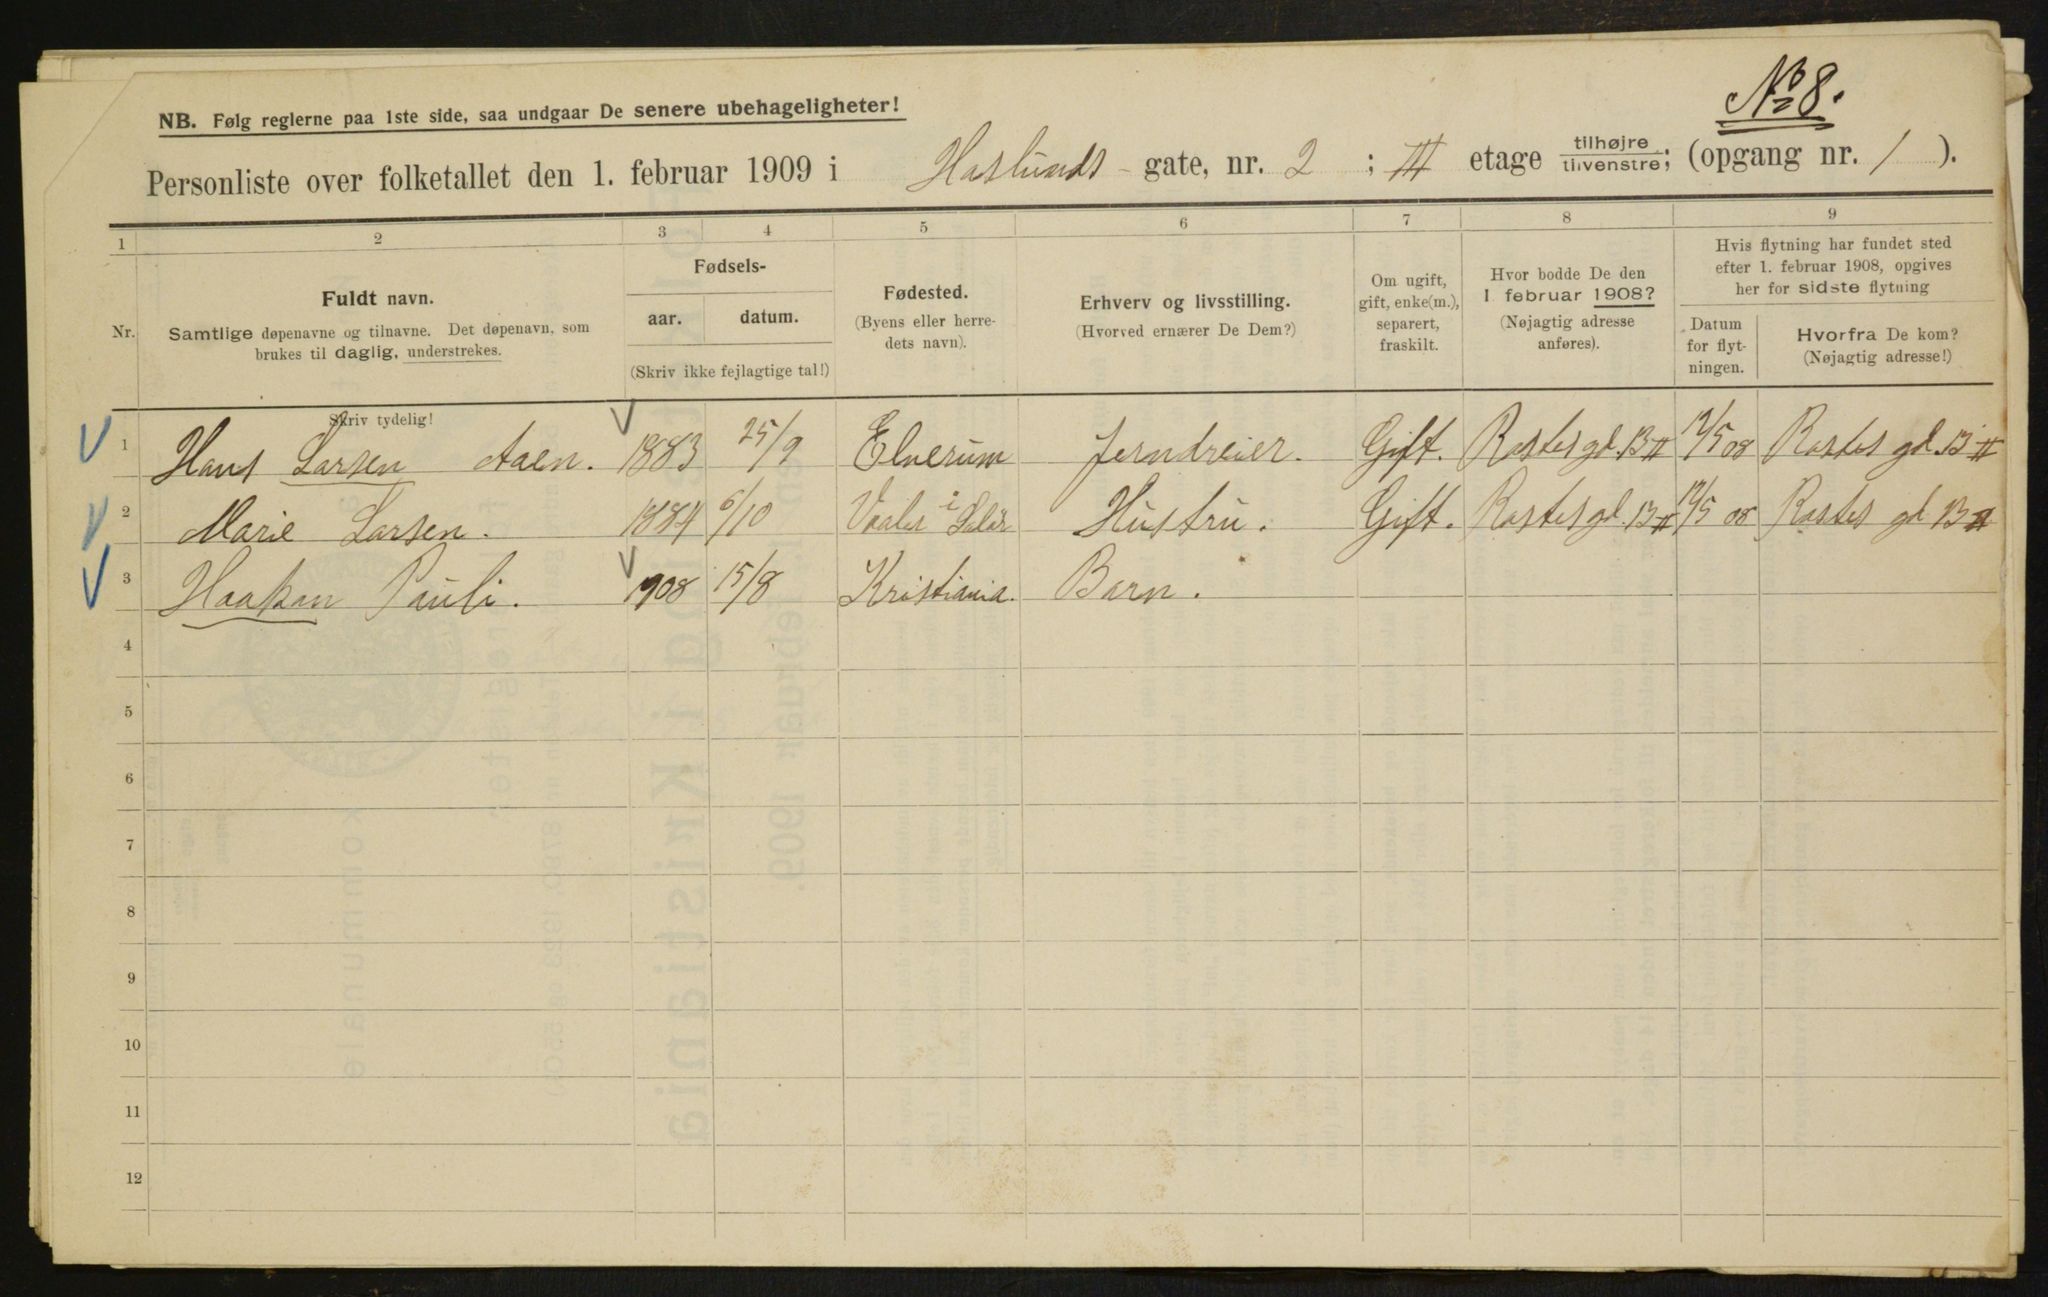 No 8.
NB. Følg reglerne paa 1ste side, saa undgaar De senere ubehageligheter!
Personliste over folketallet den 1. februar 1909 i Haslunds - gate, nr. 2 ; III etage tilhøjre/tilvenstre; (opgang nr. 1 ).
1 2 3 4 5 6 7 8 9
Nr.
Fuldt navn.
Samtlige døpenavne og tilnavne. Det døpenavn, som
brukes til daglig, understrekes.
Skriv tydelig!
Fødsels-
aar. datum.
(Skriv ikke fejlagtige tal!)
Fødested.
(Byens eller herre-
dets navn).
Erhverv og livsstilling.
(Hvorved ernærer De Dem?)
Om ugift,
gift, enke(m.),
separert,
fraskilt.
Hvor bodde De den
1. februar 1908?
(Nøjagtig adresse
anføres).
Hvis flytning har fundet sted
efter 1. februar 1908, opgives
her for sidste flytning
Datum
for flyt-
ningen.
Hvorfra De kom?
(Nøjagtig adresse!)
1 Hans Larsen Aaen. 1883 25/9 Elverum Jerndreier. Gift. Rostes gd. 13 II 12/5 08 Rostes gd. 13 II
2 Marie Larsen. 1884 6/10 Vaaler i Solør Hustru. Gift. Rostes gd. 13 II 12/5 08 Rostes gd 13 II
3 Haakon Pauli. 1908 15/8 Kristiania. Barn.
4
5
6
7
8
9
10
11
12